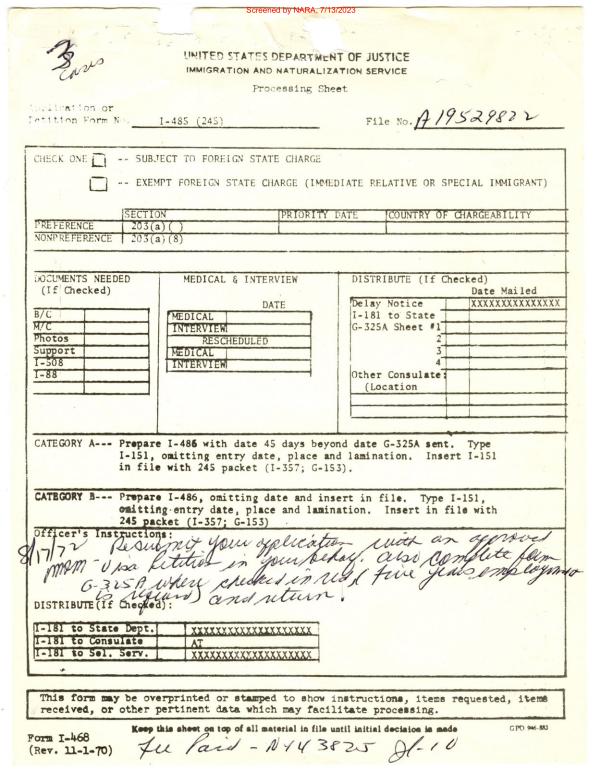 Screened by NARA, 7/13/2023
3
Cards
UNITED STATES DEPARTMENT OF JUSTICE
IMMIGRATION AND NATURALIZATION SERVICE
Processing Sheet
Application or
Petition Form No. I-485 (245) File No. A19529822
CHECK ONE -- SUBJECT TO FOREIGN STATE CHARGE
-- EXEMPT FOREIGN STATE CHARGE (IMMEDIATE RELATIVE OR SPECIAL IMMIGRANT)
SECTION PRIORITY DATE COUNTRY OF CHARGEABILITY
PREFERENCE 203(a)( )
NONPREFERENCE 203(a)(8)
DOCUMENTS NEEDED
(If Checked)
B/C
M/C
Photos
Support
I-508
I-88
MEDICAL & INTERVIEW
DATE
MEDICAL
INTERVIEW
RESCHEDULED
MEDICAL
INTERVIEW
DISTRIBUTE (If Checked)
Date Mailed
Delay Notice XXXXXXXXXXXXXXX
I-181 to State
G-325A Sheet #1
2
3
4
Other Consulate:
(Location
CATEGORY A--- Prepare I-486 with date 45 days beyond date G-325A sent. Type
I-151, omitting entry date, place and lamination. Insert I-151
in file with 245 packet (I-357; G-153).
CATEGORY B--- Prepare I-486, omitting date and insert in file. Type I-151,
omitting entry date, place and lamination. Insert in file with
245 packet (I-357; G-153)
Officer's Instructions:
8/17/72 Resubmit your application with an approved
visa Petition in your behalf. Also complete form
G-325A where checked in red (five years employment
is required) and return.
DISTRIBUTE (If Checked):
I-181 to State Dept. XXXXXXXXXXXXXXXXXXXX
I-181 to Consulate AT
I-181 to Sel. Serv. XXXXXXXXXXXXXXXXXXXX
This form may be overprinted or stamped to show instructions, items requested, items
received, or other pertinent data which may facilitate processing.
Keep this sheet on top of all material in file until initial decision is made
GPO 946-883
Form I-468
(Rev. 11-1-70) Fee Paid - NY43825